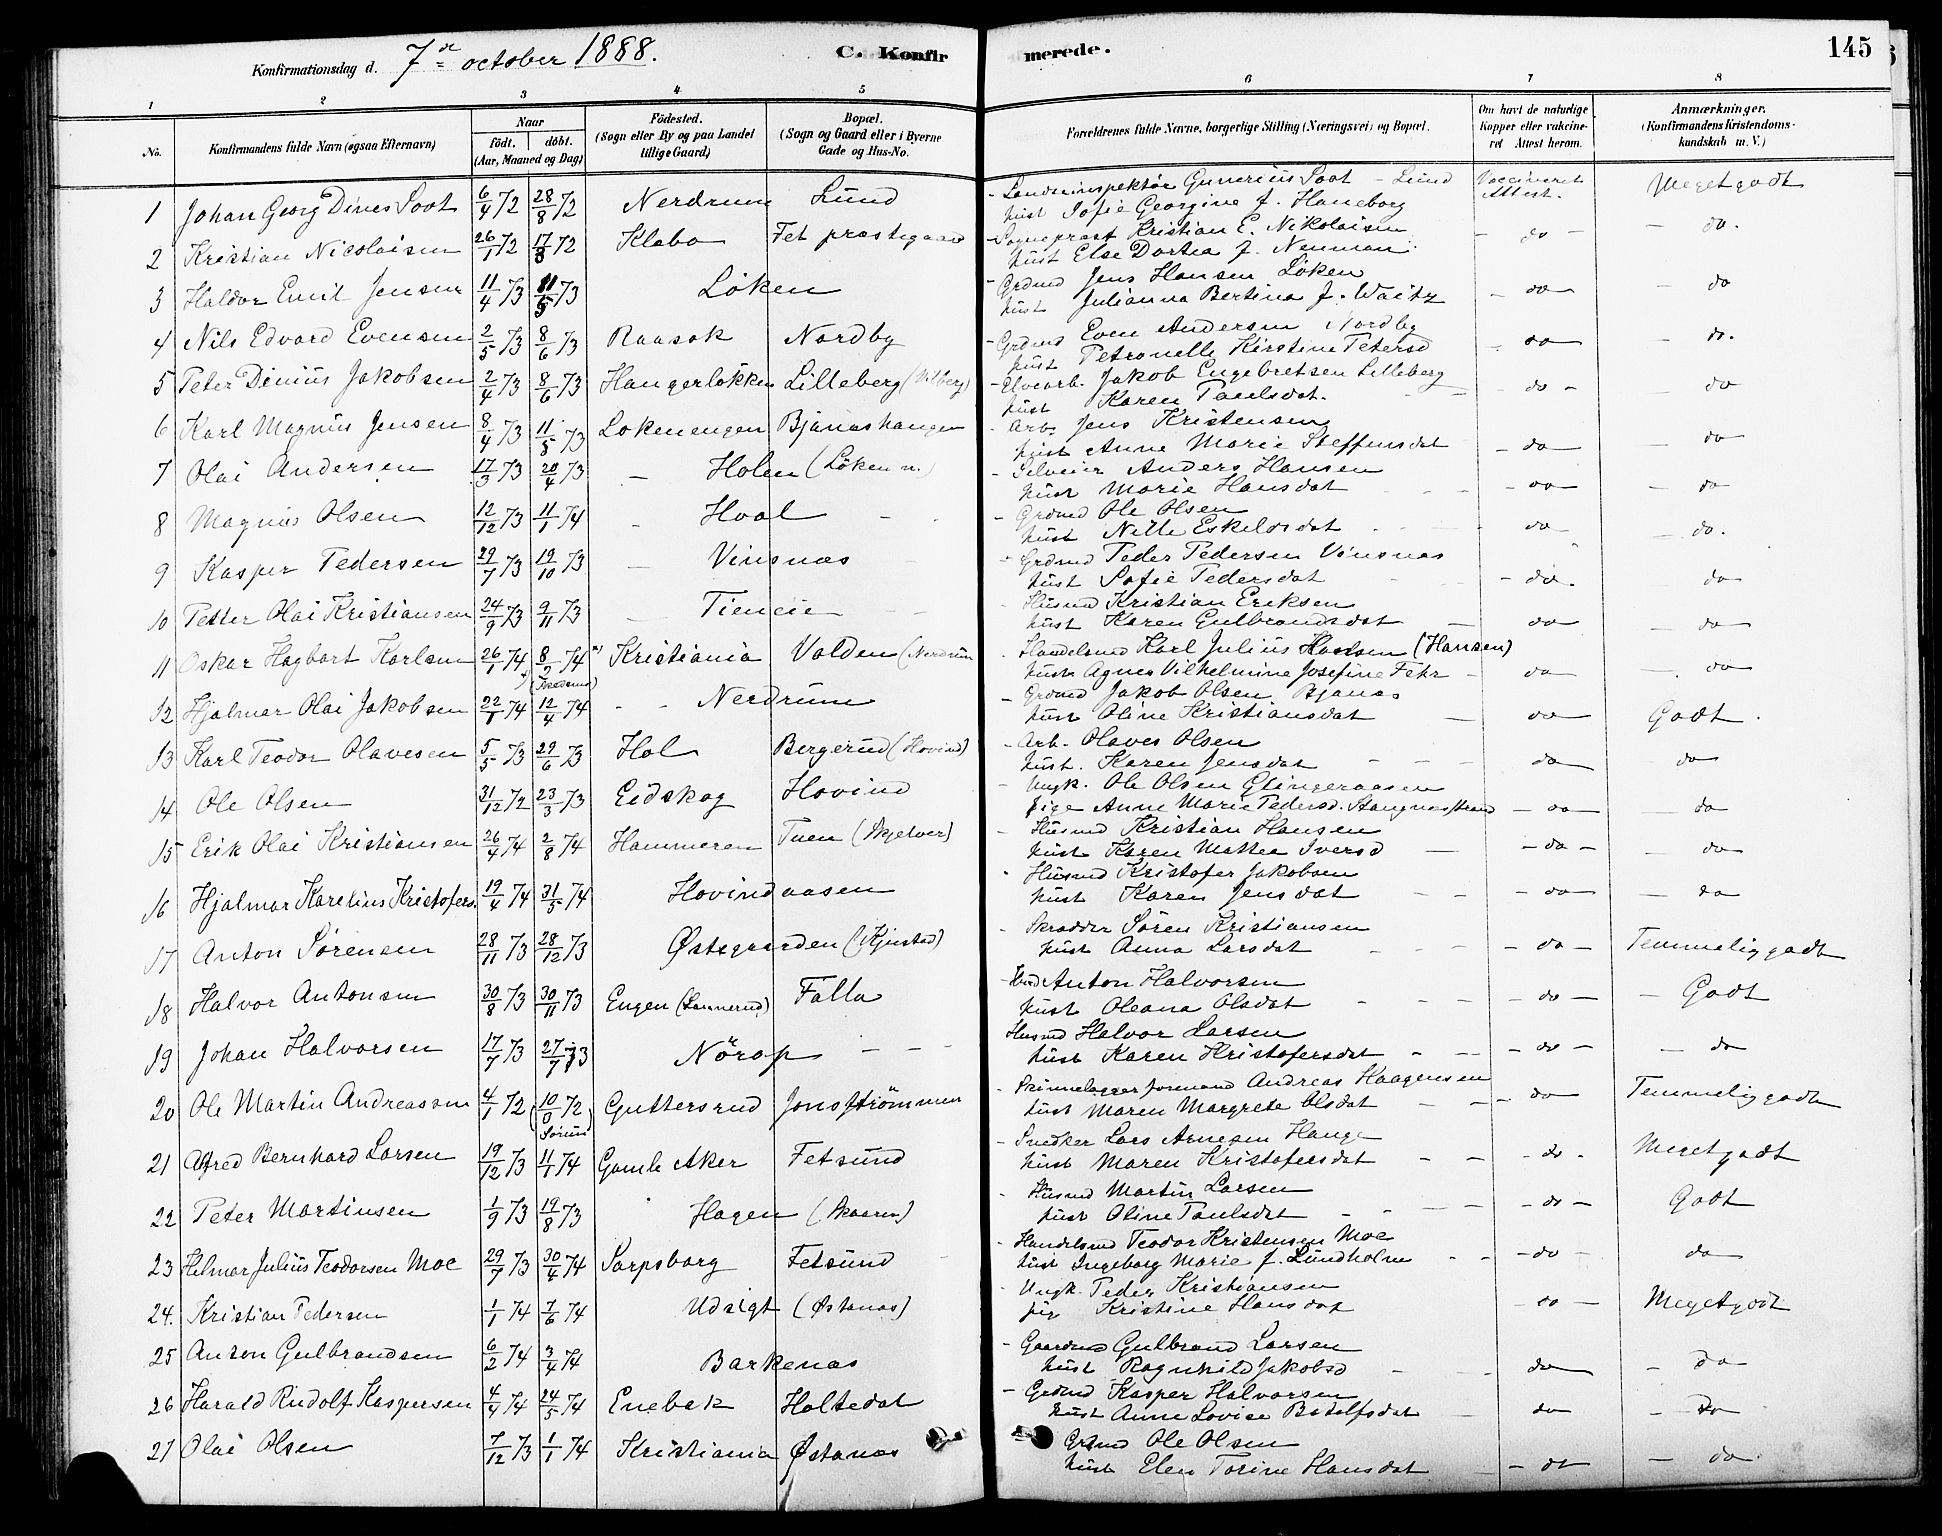 145
Konfirmationsdag d. 7de october 1888. C. Konfirmerede.
1 2 3 4 5 6 7 8
No. Konfirmandens fulde Navn (ogsaa Efternavn) Naar født. døbt. (Aar, Maaned og Dag) Fødested. (Sogn eller By og paa Landet tillige Gaard) Bopæl. (Sogn og Gaard eller i Byerne Gade og Hus-No. Forældrenes fulde Navne, borgerlige Stilling (Næringsvei) og Bopæl. Om havt de naturlige Kopper eller vakcineret Attest herom. Anmærkninger. (Konfirmandens Kristendomskundskab m. V.)
1 Johan Georg Dines Soot 6/4 72 28/8 72 Nerdrum Lund - Gunerius Soot - Lund Vaccineret Attest. Megetgodt
hust Sofie Georgine f. Haneborg
2 Kristian Nicolaisen 26/1 72 17/3 72 Klabo Fet prastegaard - Sogneprast Kristian E. Nikolaisen - do - - do.
hust Else Dortea f. Neuman
3 Haldor Emil Jensen 11/4 73 11/5 73 Løken - Grdmd Jens Hansen Løken - do - - do
hust Julianna Bertina f. Waitz
4 Nils Edvard Evensen 2/5 73 8/6 73 Raasok Nordby - Grdmd Even Andersen Nordby - do - - do.
hust Petronelle Kirstine Petersd
5 Peter Dinius Jakobsen 2/4 73 8/6 73 Haugerløkken Lilleberg (Vilberg) - Elvearb. Jakob Engebretsen Lilleberg - do - - do
hust Karen Paulsdat.
6 Karl Magnus Jensen 8/4 73 11/5 73 Lokenengen Bjanashangen - Arb. Jens Kristensen - do - - do
hust Anne Marie Steffensdat
7 Olai Andersen 17/3 73 20/4 73 - Holen (Løken n.) - Selveier Anders Hansen - do - - do
hust Marie Hansdat
8 Magnus Olsen 12/12 73 11/1 74 - Hval - Grdmd Ole Olsen - do - - do.
hust Nille Eskelsdat
9 Kasper Pedersen 29/7 73 19/10 73 - Vinsnas - Grdmd Peder Pedersen Vinsnas - do. do
hust Sofie Pedersdat
10 Petter Olai Kristiansen 24/9 73 9/11 73 - Tieneie - Husmd Kristian Eriksen do - - do
hust Karen Gulbrandsdat
11 Oskar Hagbart Karlsen 26/1 74 8/2 74 Kristiania Valden (Nerdrum - Handelsmd Karl Julius Karlsen (Hansen) do - - do
hust Agnes Vilhelmine Josefine Fehr
12 Hjalmar Olai Jakobsen 22/1 74 12/4 74 - - Nerdrum - Grdmd Jakob Olsen Bjanas do Godt.
hust Oline Kristiansdat
13 Karl Teodor Olavesen 5/5 73 29/6 73 Hol Bergerud (Hovind) - Arb. Olaves Olsen do do
hust. Karen Jensdat
14 Ole Olsen 31/12 72 23/3 73 Eidskog Hovind - Ungk. Ole Olsen - do - - do
pige Anne Marie Pedersd.
15 Erik Olai Kristiansen 26/4 74 2/8 74 Hammeren Tuen (Skjelver) - Husmd Kristian Hansen - do - - do
hust Karen Mathea Iversd
16 Hjalmar Karelius Kristofers. 19/4 74 31/5 74 Hovindaasen - Husmd Kristofer Jakobsen - do - - do
hust Karen Jensdat
17 Anton Sørensen 28/11 73 28/12 73 Østegaarden (Kjustad) - Skradder Søren Kristiansen - do - Temmeliggodt
hust Anna Larsdat
18 Halvor Antonsen 30/8 73 30/11 73 Engen Falla Anton Halvorsen - do - - Godt
hust Oleana Olsdat
19 Johan Halvorsen 17/7 73 27/7 73 Nörop - - - Husmd Halvor Larsen - do - - do
hust Karen Kristofersdat
20 Ole Martin Andreassen 4/1 72 10/9 72 (Sørum) Guttersrud Jonsstrømmen - Skinnelaggerformand Andreas Haagensen - do Temmeliggodt
hust Maren Margrete Olsdat
21 Alfred Bernhard Larsen 19/12 73 11/1 74 Gamle Aker Fetsund - Snedker Lars Arnesen Hauge - do - Megetgodt
hust Maren Kristofersdat
22 Peter Martinsen 1/9 73 19/8 73 Hagen (Skaaren) - Husmd Martin Larsen - do - Godt
hust Oline Paulsdat
23 Helmar Julius Teodorsen Moe 29/7 73 30/4 74 Sarpsborg Fetsund - Handelsmd Teodor Kristensen Moe - do - do
hust Ingeborg Marie f. Lundholm
24. Kristian Pedersen 1/1 74 7/6 74 Udsigt (Østanas) - Ungk. Peder Kristiansen - do - Megetgodt
pig Kristine Hansdat
25 Anton Gulbrandsen 6/2 74 3/4 74 Barkenas - Gaardmd Gulbrand Larsen do - do
hust Ragnhild Jakobsd
26 Harald Rudolf Kaspersen 4/4 74 24/5 74 Enebak Holtedat - Grdmd Kasper Halvorsen do - do
hust Anne Lovise Botolfsdat
27 Olai Olsen 7/12 73 1/1 74 Kristiania Østanas Grdmd Ole Olsen - do - do
hust Elen Torine Hansdat